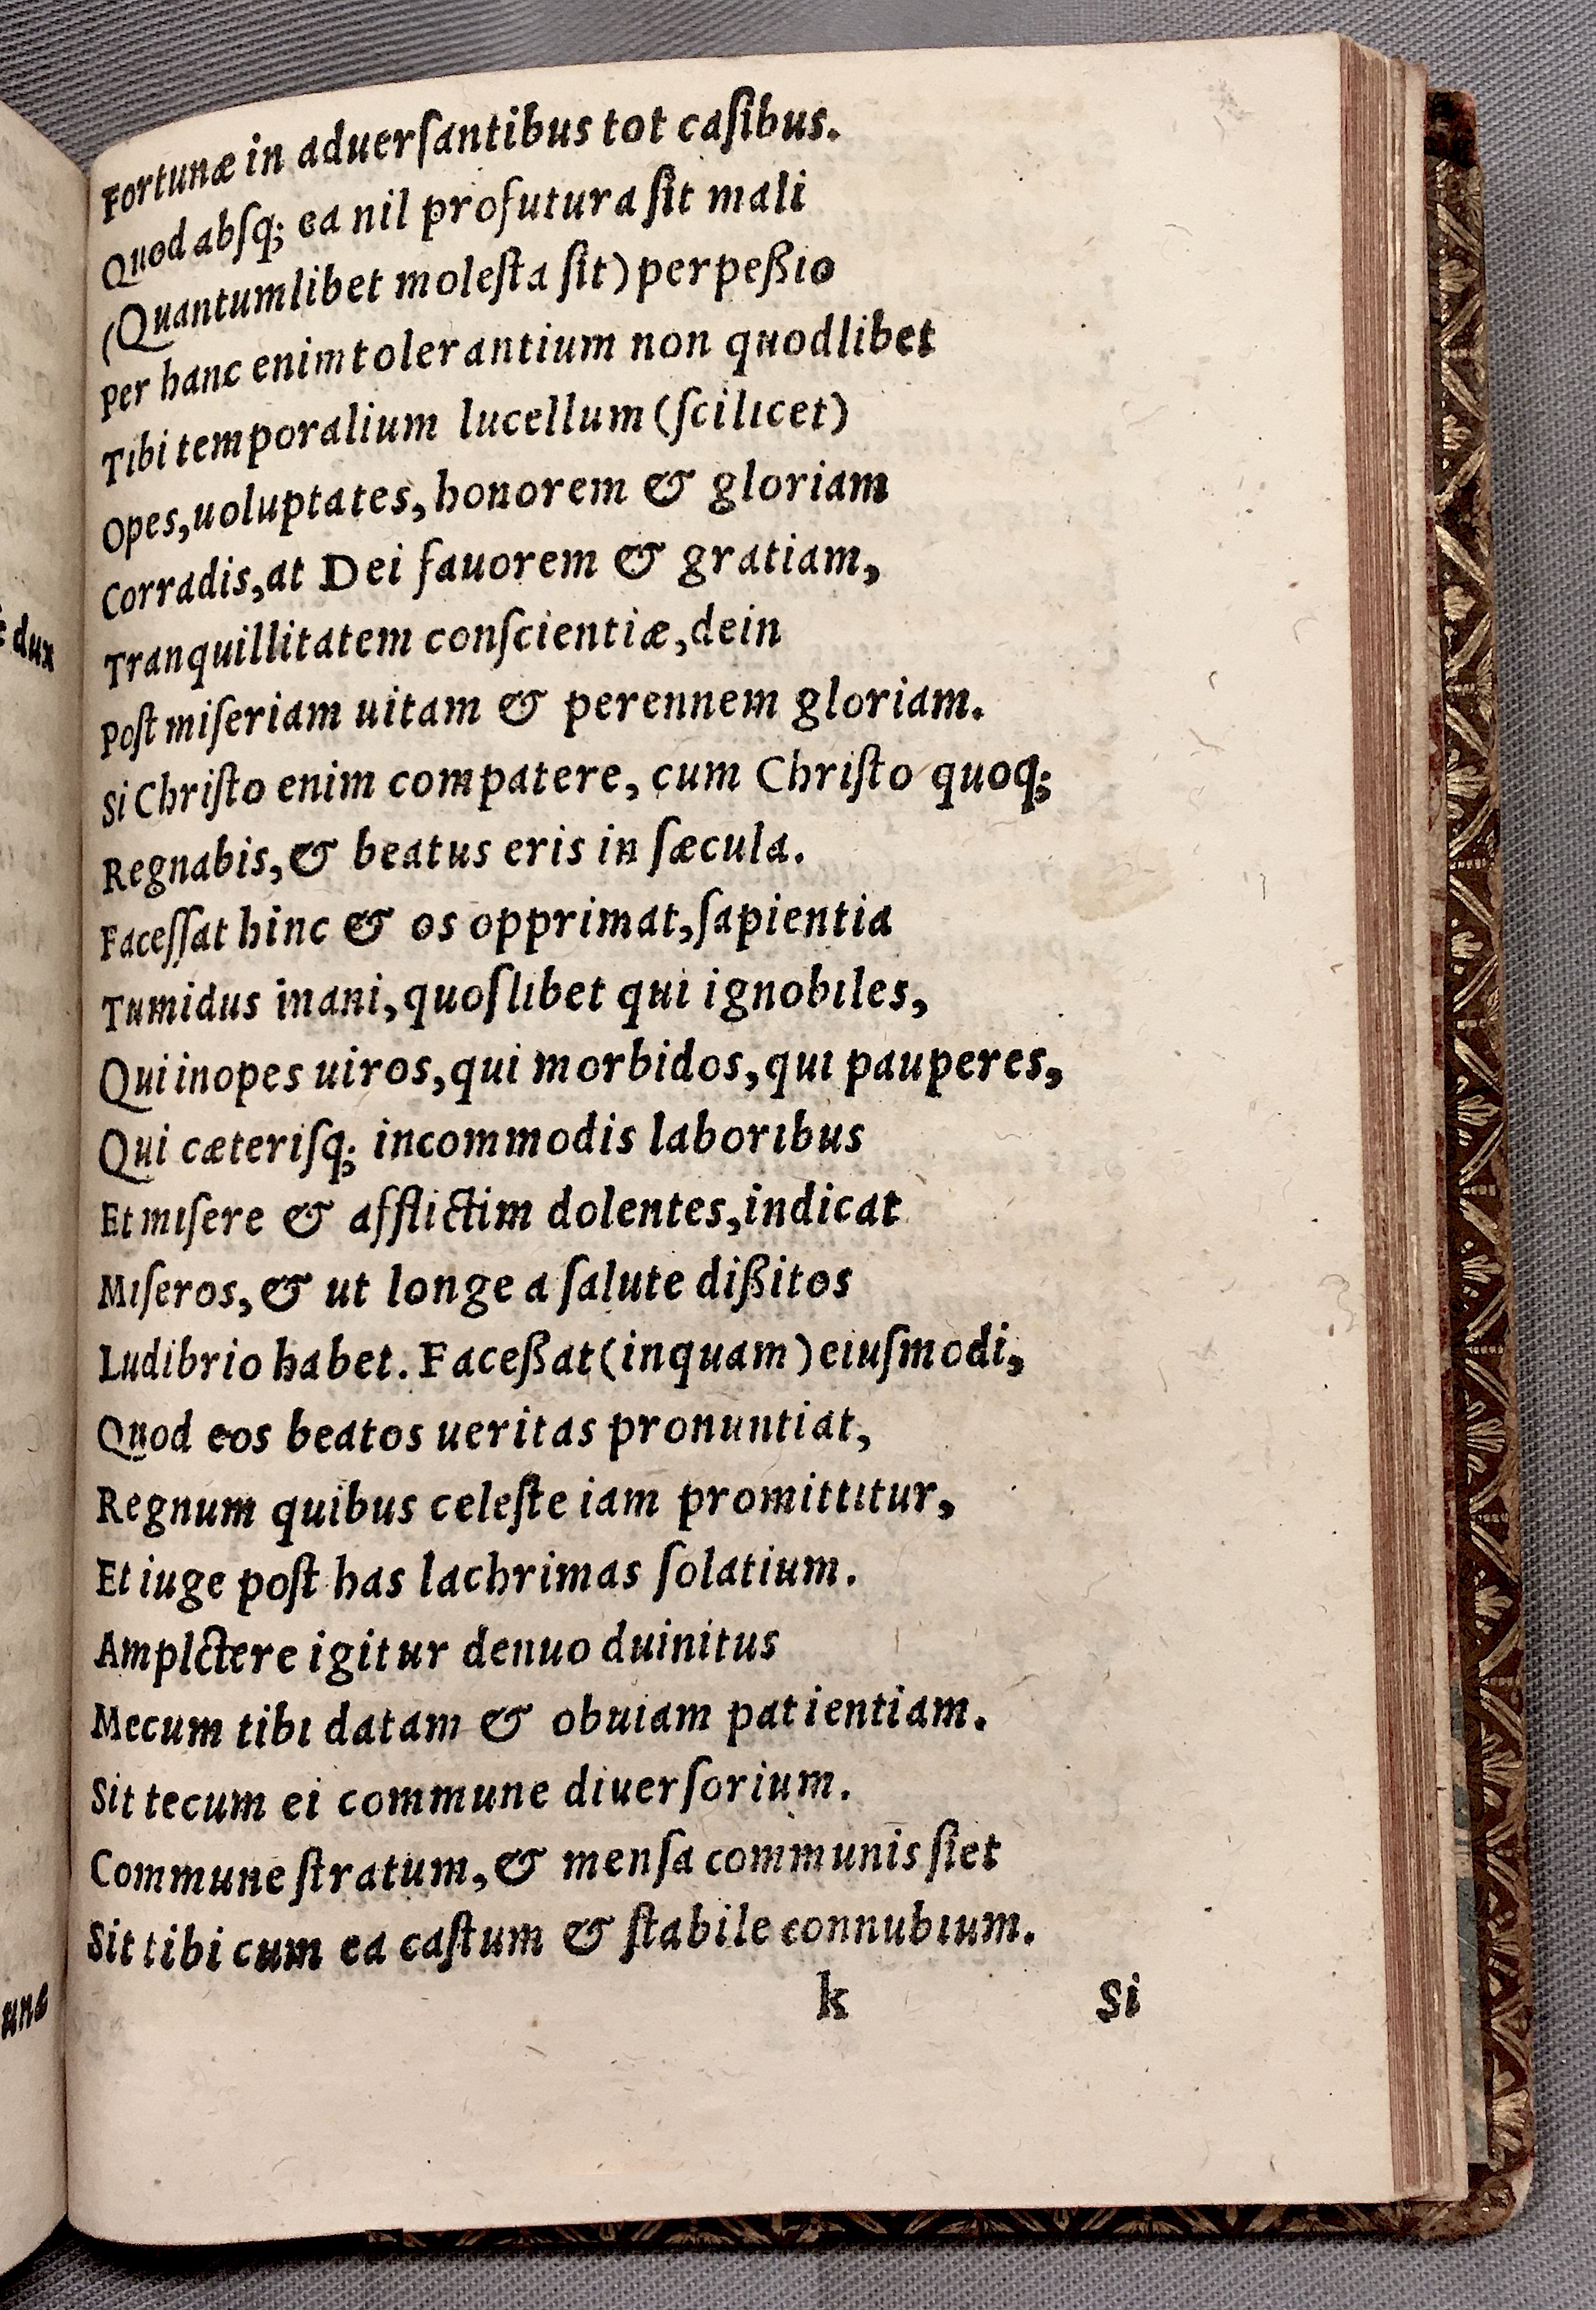 Fortunæ in aduerſantibus tot caſibus.
Quod abſq; ea nil profutura ſit mali
(Quantumlibet moleſta ſit) perpeßio
Per hanc enim tolerantium non quodlibet
Tibi temporalium lucellum (ſcilicet)
Opes, uoluptates, honorem & gloriam
Corradis, at Dei fauorem & gratiam,
Tranquillitatem conſcientiæ, dein
Poſt miſeriam uitam & perennem gloriam.
Si Chriſto enim compatere, cum Chriſto quoq;
Regnabis, & beatus eris in ſæcula.
Faceſſat hinc & os opprimat, ſapientia
Tumidus inani, quoſlibet qui ignobiles,
Qui inopes uiros, qui morbidos, qui pauperes,
Qui cæteriſq; incommodis laboribus
Et miſere & afflictim dolentes, indicat
Miſeros, & ut longe a ſalute dißitos
Ludibrio habet. Faceßat (inquam) eiuſmodi,
Quod eos beatos ueritas pronuntiat,
Regnum quibus celeſte iam promittitur,
Et iuge poſt has lachrimas ſolatium.
Amplctere igitur denuo duinitus
Mecum tibi datam & obuiam patientiam.
Sit tecum ei commune diuerſorium.
Commune ſtratum, & menſa communis ſiet
Sit tibi cum ea caſtum & ſtabile connubium.
k Si
dux